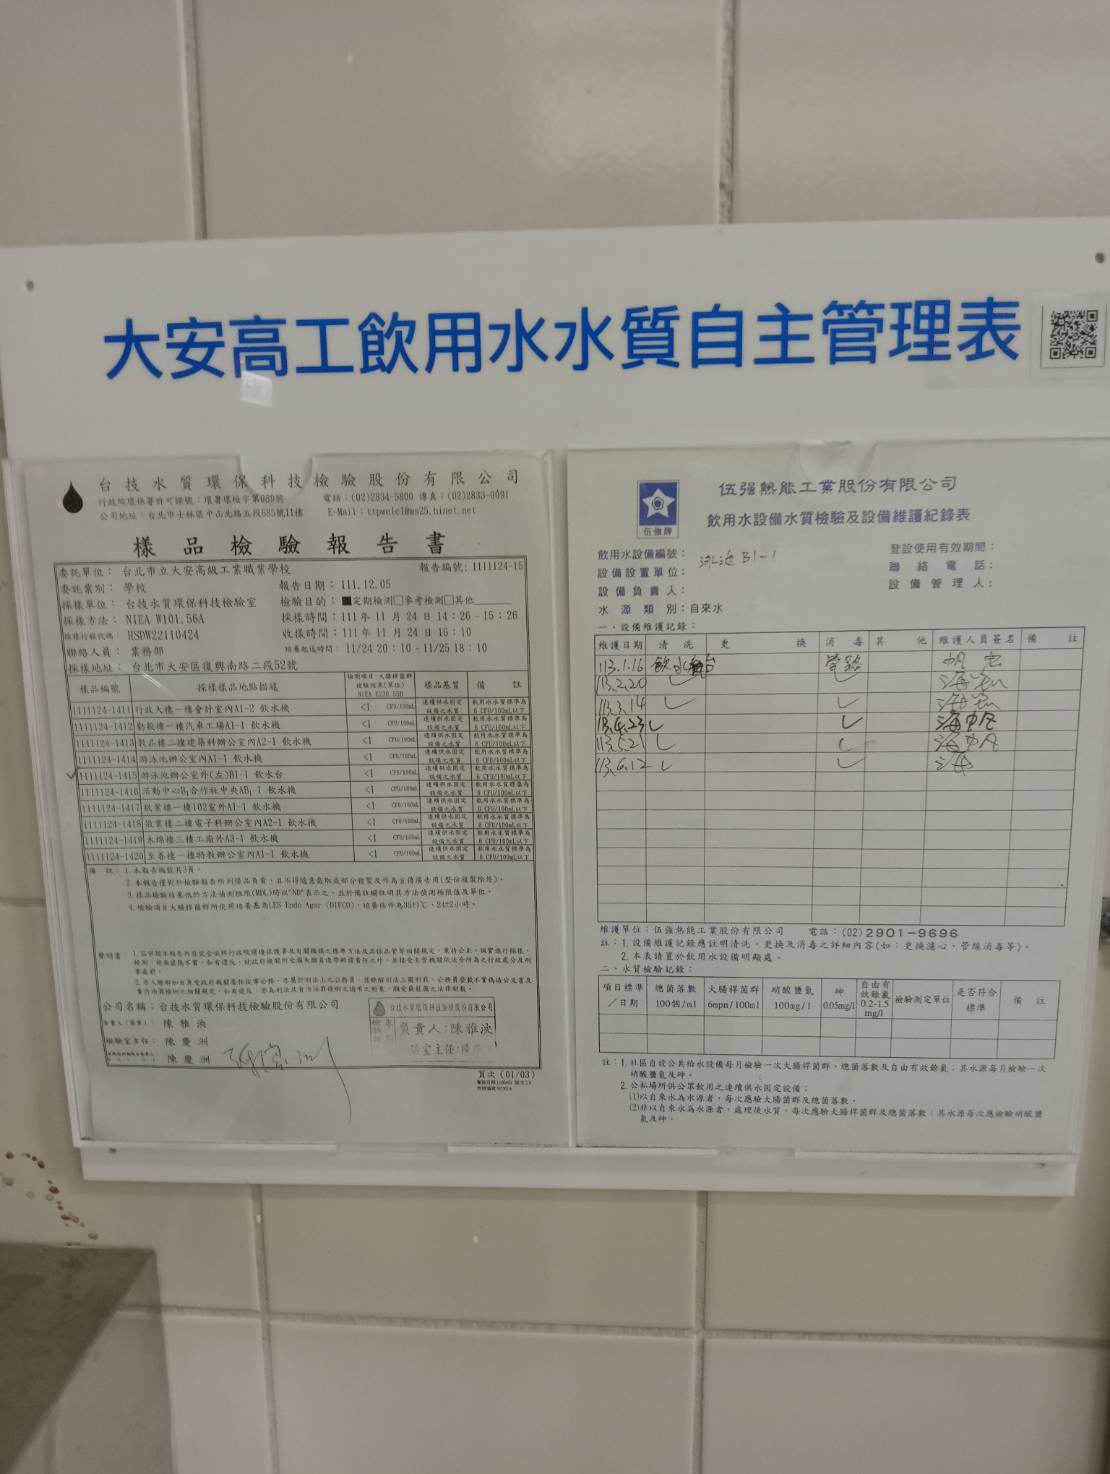 大安高工飲用水水質自主管理表
台技水質環保科技檢驗股份有限公司
行政院環保署許可證號：環署環檢字第089號 電話：(02)2834-5800 傳真：(02)2833-0091
公司地址：台北市士林區中山北路五段685號11樓 E-Mail：ttpwelcl@ms25.hinet.net
樣品檢驗報告書
委託單位：台北市立大安高級工業職業學校 報告編號：1111124-15
委託業別：學校 報告日期：111.12.05
採樣單位：台技水質環保科技檢驗室 檢驗目的：■定期檢測□參考檢測□其他
採樣方法：NIEA W101.56A 採樣時間：111年11月24日14：26-15：26
HSDW22110424 收樣時間：111年11月24日16：10
聯絡人員：業務部 培養起迄時間：11/24 20：10-11/25 18：10
採樣地址：台北市大安區復興南路二段52號
樣品編號 採樣樣品地點描述 樣品基質 備註
1111124-1411 行政大樓一樓會計室內A1-2 飲水機 <1
1111124-1412 勤毅樓一樓汽車工場A1-1 飲水機 <1
1111124-1413 敦品樓二樓建築科辦公室內A2-1 飲水機 <1
1111124-1414 游泳池辦公室內A1-1 飲水機 <1
1111124-1415 游泳池辦公室外(左)B1-1 飲水台 <1
1111124-1416 活動中心B1合作社中央AB1-1 飲水機 <1
1111124-1417 敬業樓一樓102室外A1-1 飲水機 <1
1111124-1418 敬業樓二樓電子科辦公室內A2-1 飲水機 <1
1111124-1419 木綿樓三樓工廠外A3-1 飲水機 <1
1111124-1420 至善樓一樓特教辦公室內A1-1 飲水機 <1
備註：1.本報告編號共3頁。
2.本報告僅對於檢驗報告所列樣品負責，且不得隨意截取或部分複製及作為宣傳廣告用(整份複製除外)。
3.樣品檢驗結果低於方法偵測極限(MDL)時以"ND"表示之，並於備註欄註明其方法偵測極限值及單位。
4.檢驗項目大腸桿菌群所使用培養基為LES Endo Agar (DIFCO)、培養條件為35±1℃、24±2小時。
公司名稱：台技水質環保科技檢驗股份有限公司
陳雅泱
檢驗室主任：陳慶洲
陳慶洲
台技水質環保科技檢驗股份有限公司
負責人：陳雅泱
頁次(01/03)
伍強牌
伍强熱能工業股份有限公司
飲用水設備水質檢驗及設備維護紀錄表
飲用水設備編號：泳池 B1-1 登設使用有效期間：
設備設置單位： 聯絡電話：
設備負責人： 設備管理人：
水源類別：自來水
一、設備維護記錄：
維護日期 清洗 更換 消毒 其他 維護人員簽名 備註
113.1.16 飲水台 管路
113.2.20 ✓ ✓
113.3.14 ✓ ✓
113.4.23 ✓ ✓
113.5.21 ✓ ✓
113.6.12 ✓ ✓
維護單位：伍強熱能工業股份有限公司 電話：(02)2901-9696
註：1.設備維護記錄應註明清洗、更換及消毒之詳細內容(如：更換濾心、管線消毒等)。
2.本表請置於飲用水設備明顯處。
二、水質檢驗記錄：
項目標準／日期 總菌落數100個/ml 大腸桿菌群6mpn/100ml 硝酸鹽氮100mg/l 砷0.05mg/l 自由有效餘氯0.2-1.5mg/l 檢驗測定單位 是否符合標準 備註
註：1.社區自設公共給水設備每月檢驗一次大腸桿菌群、總菌落數及自由有效餘氯；其水源每月檢驗一次
硝酸鹽氮及砷。
2.公私場所供公眾飲用之連續供水固定設備：
(1)以自來水為水源者，每次應驗大腸菌群及總菌落數。
(2)非以自來水為水源者，處理後水質，每次應驗大腸桿菌群及總菌落數；其水源每次應檢驗硝酸鹽
氮及砷。